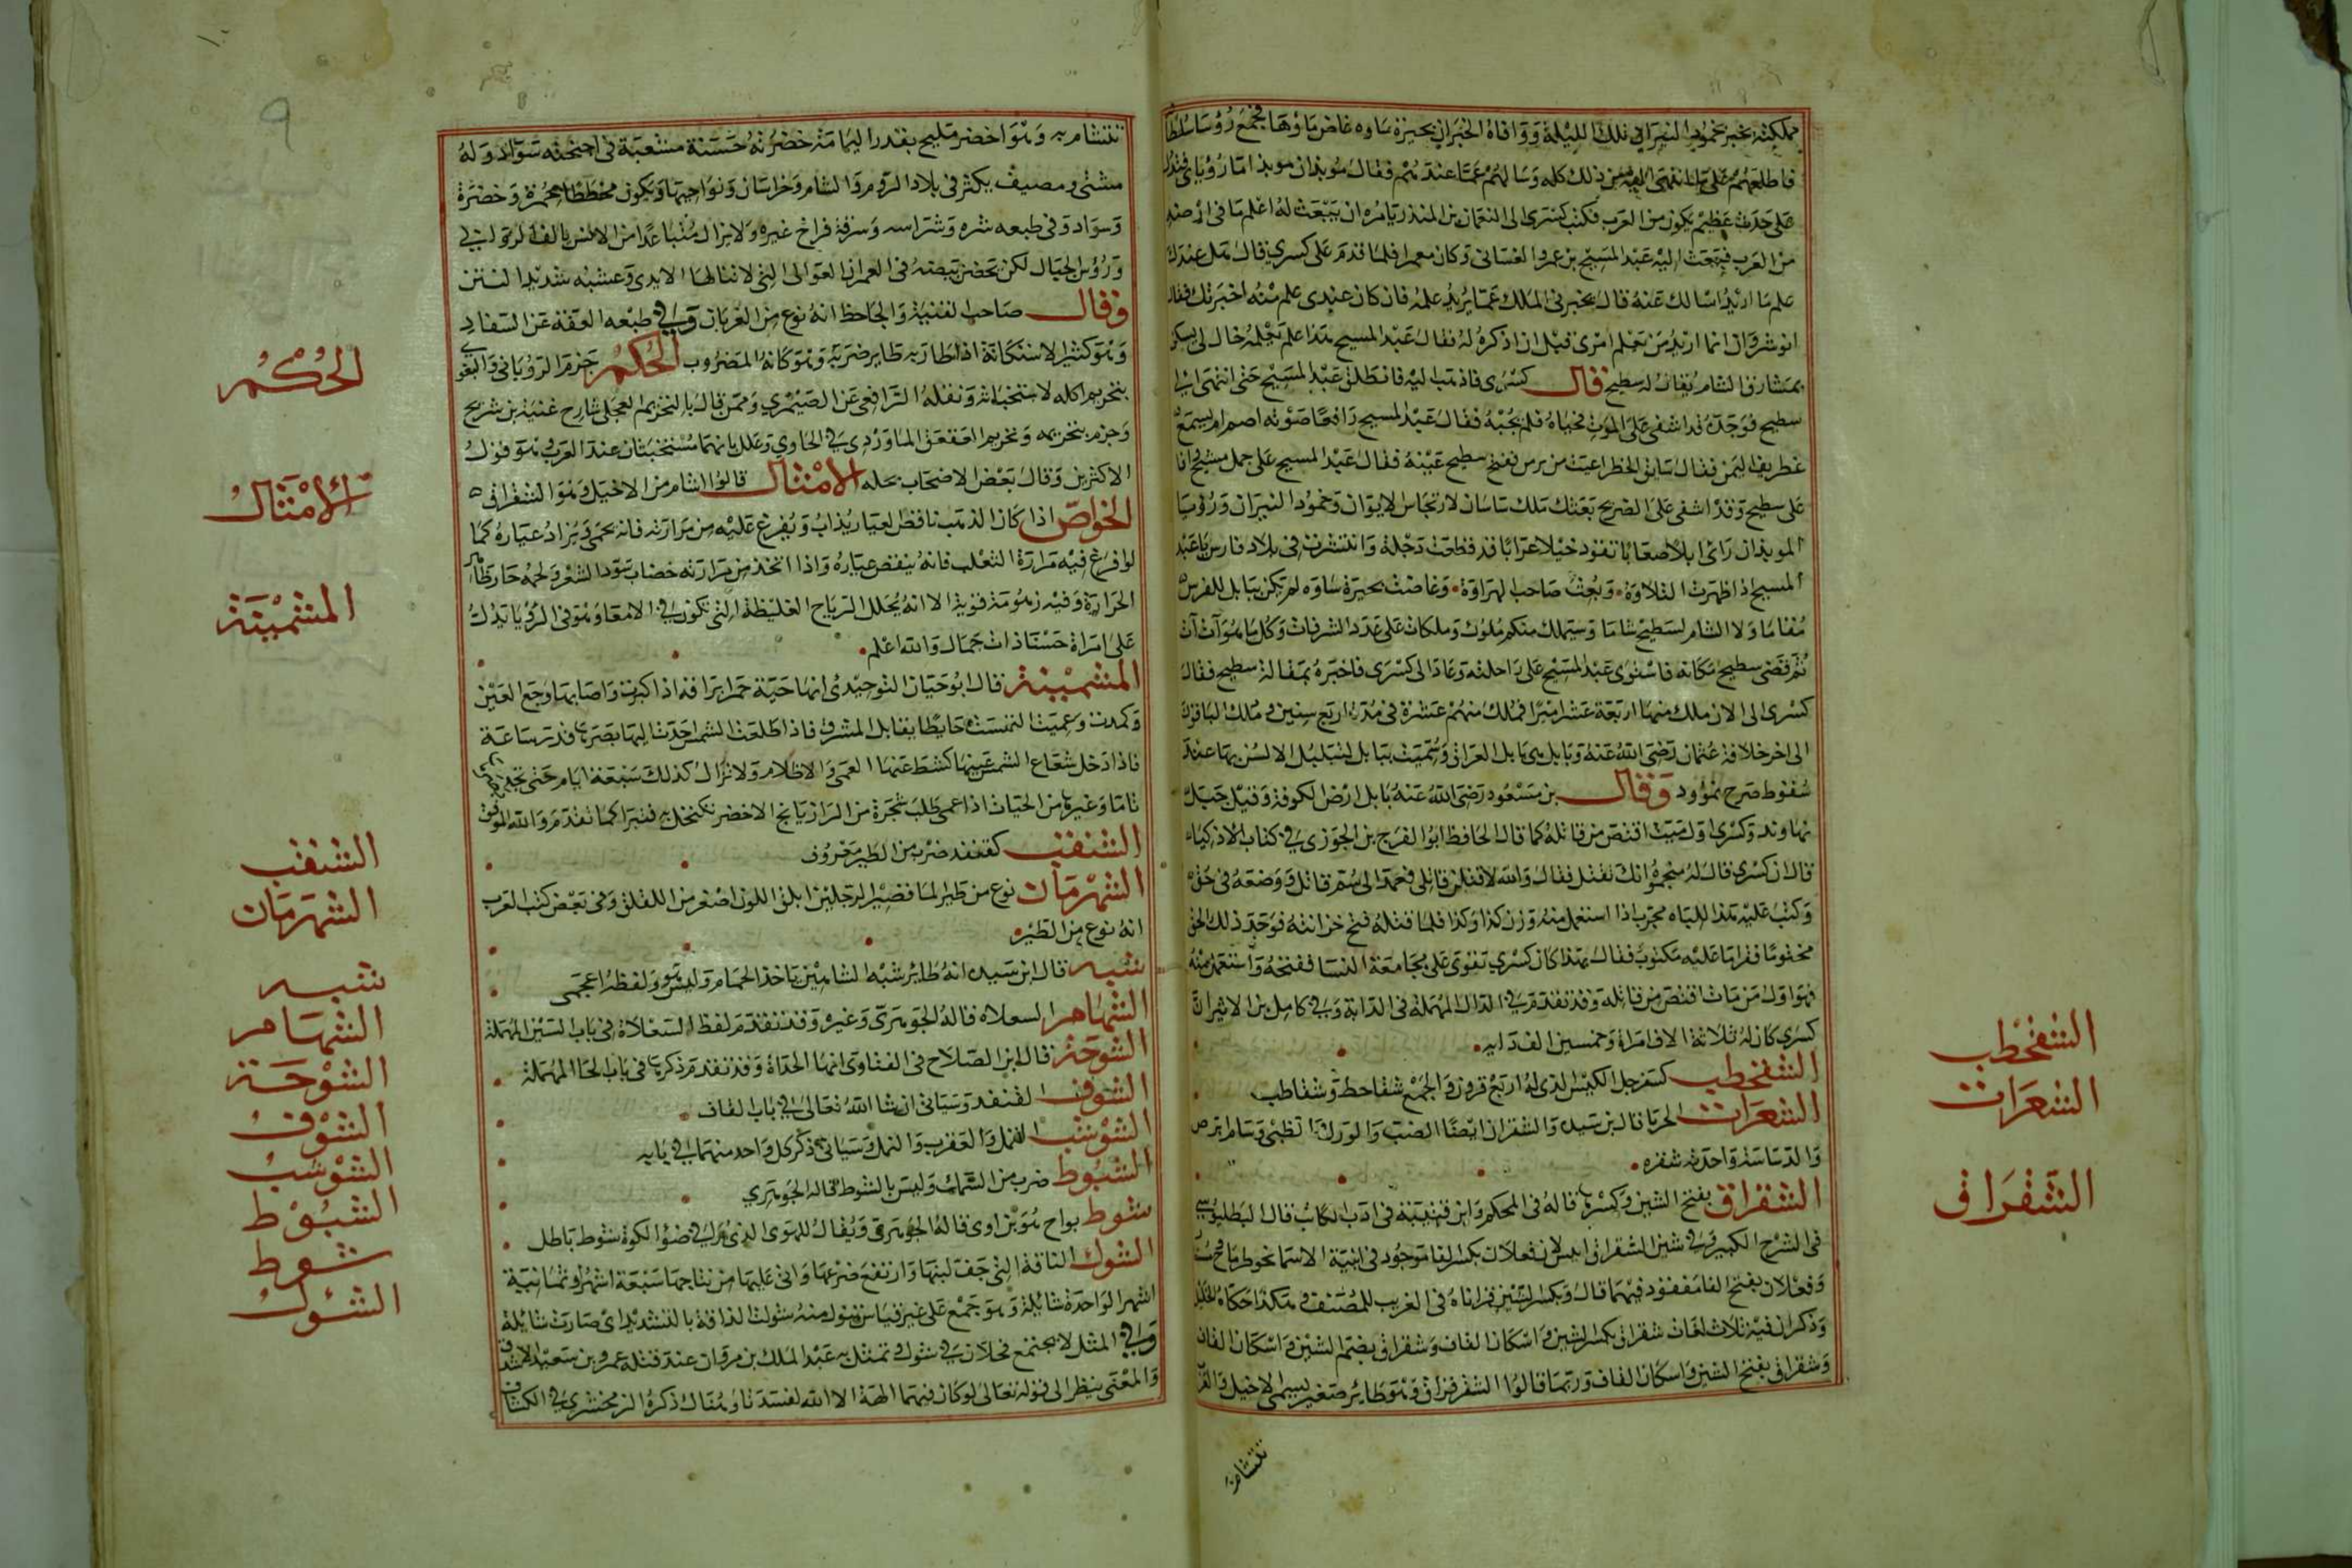 مملكته يخبر بخمود النيران في تلك الليلة ووافاه الخبر ان بحيرة ساوه غاض ماؤها فجمع رؤسا سلطا
فاطلعهم على ما انتهى اليه من ذلك كله وسالهم عما عندهم فقال موبذان موبذ اما رؤياي فتدل
على حدث عظيم يكون من العرب فكتب كسرى الى النعمان بن المنذر يامره ان يبعث له اعلم ما في ارضه
من العرب فبعث اليه عبد المسيح بن عمرو الغساني وكان معمرا فلما قدم على كسرى قال هل عندك
علم ما اريد اسالك عنه قال يخبرني الملك عما يريد علمه فان كان عندي علم منه اخبرتك فقال
انوشروان انما اريد من يعلم امرى قبل ان اذكره له فقال عبد المسيح هذا علم يعلمه خال لي يسكن
بمشارف الشام يقال له سطيح قال كسرى فاذهب اليه فانطلق عبد المسيح حتى انتهى الى
سطيح فوجده قد اشفى على الموت فحياه فلم يجبه فقال عبد المسيح رافعا صوته اصم ام يسمع
غطريف اليمن ففتح سطيح عينيه فقال عبد المسيح على جمل مشيح وافا
على سطيح وقد اشفى على الضريح بعثك ملك ساسان لارتجاس الايوان وخمود النيران ورؤيا
الموبذان راى ابلا صعابا تقود خيلا عرابا قد قطعت دجلة وانتشرت في بلاد فارس يا عبد
المسيح اذا ظهرت التلاوة وبعث صاحب الهراوة وغاضت بحيرة ساوه لم تكن بابل للفرس
مقاما ولا الشام لسطيح شاما وسيملك منكم ملوك وملكات على عدد الشرفات وكل ما هو آت آت
ثم قضى سطيح مكانه فاستوى عبد المسيح على راحلته وعاد الى كسرى فاخبره بمقالة سطيح فقال
كسرى الى ان ملك منها اربعة عشر اميرا فملك منهم عشرة في مدة اربع سنين وملك الباقون
الى اخر خلافة عثمان رضي الله عنه وبابل هي بابل العراق وسميت بابل لتبلبل الالسن بها عند
سقوط صرح نمرود وقال بن مسعود رضي الله عنه بابل ارض الكوفة وقيل جبل
نهاوند وكسرى اول ميت اقتص من قاتله كما قال الحافظ ابو الفرج بن الجوزي في كتاب الاذكياء
قال ان كسرى قال له منجموه انك تقتل فقال والله لاقتلن قاتلي فعمد الى سم قاتل ووضعه في حق
وكتب عليه هذا للباه مجرب اذا استعمل منه وزن كذا وكذا فلما قتله فتح خزانته فوجد ذلك الحق
مختوما فقرا ما عليه مكتوب فقال بهذا كان كسرى تقوى على مجامعة النسا ففتحه واستعمل منه
فهو اول من مات اقتص من قاتله وقد تقدم في الدال المهملة في الدابة وفي كامل بن الاثير ان
كسرى كان له ثلاثة الاف امراة وخمسين الف دابه
الشقحطب كسفرجل الكبش الذي له اربع قرون والجمع شقاحط وشقاطب
الشعرات الحربا قال بن سيده والشقران ايضا الضب والورك الظبي وسام ابرص
والدساسة واحدته شقره
الشقراق بفتح الشين وكسرها قاله في المحكم وابن قتيبة في ادب الكاتب قال البطليوسي
في الشرح الكبير في شين الشقراق اقيس لان فعلال بكسر الفا موجود في ابنية الاسما نحو طرماح
وفعلال بفتح الفا مفقود فيهما قال وبكسر الشين قراناه في الغريب المصنف وهكذا حكاه الخليل
وذكر ان فيه ثلاث لغات شقراق بكسر الشين واسكان القاف وشقراق بضم الشين واسكان القاف
وشقراق بفتح الشين واسكان القاف وربما قالوا الشرقراق وهو طائر صغير يسمى الاخيل والعرب
تتشام به
الشقحطب
الشعرات
الشقراق
تتشام به وهو اخضر مليح بقدر اليمامة خضرته حسنة مشبعة في اجنحته سواد وله
مشتى ومصيف يكثر في بلاد الروم والشام وخراسان ونواحيها ويكون مخططا بحمرة وخضرة
وسواد وفي طبعه شره وشراسه وسرقة فراخ غيره ولا يزال متباعدا من الانس يالف الروابي
ورؤس الجبال لكن يحضن بيضه في العمران العوالى التي لا تنالها الايدى وعشه شديد النتن
وقال صاحب لفنية والجاحظ انه نوع من الغربان وفي طبعه العفة عن السفاد
وهو كثير الاستغاثة اذا طاربه طاير ضربه وهو كانه المضروب الحكم جزم الروياني والبغوي
بتحريم اكله لاستخباثه ونقله الرافعي عن الصيمري وممن قال بالتحريم العجلي شارح غنية بن شريح
وجزم بتحريمه وتحريم العقعق الماوردي في الحاوي وعلل بانهما مستخبثان عند العرب وهو قول
الاكثرين وقال بعض الاصحاب بحله الامثال قالوا اشام من الاخيل وهو الشقراق
الخواص اذا كان الذهب ناقص العيار يذاب ويفرغ عليه من مرارته فانه يحمى ويزاد عياره كما
لو افرغ فيه مرارة الثعلب فانه ينقص عياره واذا اتخذ من مرارته خضاب سود الشعر ولحمه حار ظاهر
الحرارة وفيه زهومة قوية الا انه يحلل الرياح الغليظة التي تكون في الامعا وهو في الرؤيا يدل
على امراة حسنا ذات جمال والله اعلم
المشمينة قال ابو حيان التوحيدي انها حية حمرا براقه اذا كبرت واصابها وجع العين
وكمدت وعميت التمست حايطا يقابل المشرق فاذا طلعت الشمس احدت اليها بصرها قدر ساعة
فاذا دخل شعاع الشمس عينها كشط عنها العمى والاظلام ولا تزال كذلك سبعة ايام حتى تجد بصرها
تاما وغيرها من الحيات اذا عمى طلب شجرة من الرازيانج الاخضر فيكتحل به فتبرا كما تقدم والله الموفق
الشنقب كقنفد ضرب من الطير معروف
الشهرمان نوع من طير الما قصير الرجلين ابلق اللون اصغر من اللقلق وفي بعض كتب العرب
انه نوع من الطير
شبه قال ابن سيده انه طائر شبه الشاهين ياخذ الحمام وليس هو ولفظه اعجمى
الشهام السعلاه قاله الجوهري وغيره وقد تقدم لفظ السعلاة في باب السين المهملة
الشوحة قال ابن الصلاح في الفتاوى انها الحداة وقد تقدم ذكرها في باب الحا المهملة
الشوف القنفد وسياتي ان شا الله تعالى في باب القاف
الشوشب القمل والعقرب والنمل وسياتي ذكر كل واحد منهما في بابه
الشبوط ضرب من السمك وليس بالشوط قاله الجوهري
شوط بواح هو بن اوى قاله الجوهري ويقال للهوى الذي يرى في ضؤ الكوة شوط باطل
الشول الناقة التي جف لبنها وارتفع ضرعها واتى عليها من نتاجها سبعة اشهر او ثمانية
الشهر الواحدة شايلة وهو جمع على غير قياس نقول منه شولت الناقة بالتشديد اى صارت شايلة
وفي المثل لا يجتمع فحلان في شول وتمثل به عبد الملك بن مروان عند قتله عمرو بن سعيد الاشدق
والمعنى ينظر الى قوله تعالى لو كان فيهما الهة الا الله لفسدتا ومثال ذكره الزمخشري في الكشاف
٩
الحكم
الامثال
المشمينة
الشنقب
الشهرمان
شبه
الشهام
الشوحة
الشوف
الشوشب
الشبوط
شوط
الشول